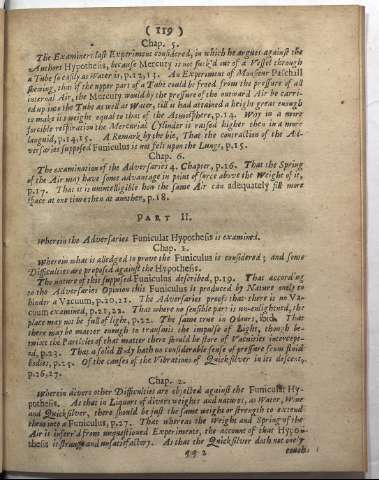 ( 119 )
Chap. 5.
The Examiners last Experiment considered, in which he argues against the
Authors Hypothesis, because Mercury is not suck'd out of a Vessel through
a Tube so easily as Water is, p.12,13. An Experiment of Monsieur Paschill
shewing, that if the upper part of a Tube could be freed from the pressure of all
internal Air, the Mercury would by the pressure of the outward Air be carri-
ed up into the Tube as well as Water, till it had attained a height great enough
to make its weight equal to that of the Atmosphere, p.14. Why in a more
forcible respiration the Mercurial Cylinder is raised higher then in a more
languid, p.14,15. A Remark by the bie, That the contraction of the Ad-
versaries supposed Funiculus is not felt upon the Lungs, p.15.
Chap. 6.
The examination of the Adversaries 4. Chapter, p.16. That the Spring
of the Air may have some advantage in point of force above the Weight of it,
p.17. That it is unintelligible how the same Air can adequately fill more
space at one time then at another, p.18.
PART II.
Wherein the Adversaries Funicular Hypothesis is examined.
Chap. 1.
Wherein what is alledged to prove the Funiculus is considered; and some
Difficulties are proposed against the Hypothesis.
The nature of this supposed Funiculus described, p.19. That according
to the Adversaries Opinion this Funiculus is produced by Nature onely to
hinder a Vacuum, p.20,21. The Adversaries proofs that there is no Va-
cuum examined, p.21,22. That where no sensible part is un-enlightned, the
place may not be full of light, p.22. The same true in Odors, ibid. That
there may be matter enough to transmit the impulse of Light, though be-
twixt the Particles of that matter there should be store of Vacuities intercept-
ed, p.23. That a solid Body hath no considerable sense of pressure from fluid
bodies, p.25. Of the causes of the Vibrations of Quicksilver in its descent,
p.26,27.
Chap. 2.
Wherein divers other Difficulties are objected against the Funicular Hy-
pothesis. As that in Liquors of divers weights and natures, as Water, Wine
and Quicksilver, there should be just the same weight or strength to extend
them into a Funiculus, p.27. That whereas the Weight and Spring of the
Air is inferr'd from unquestioned Experiments, the account of that Hypo-
thesis is strange and unsatisfactory. As that the Quicksilver doth not onely